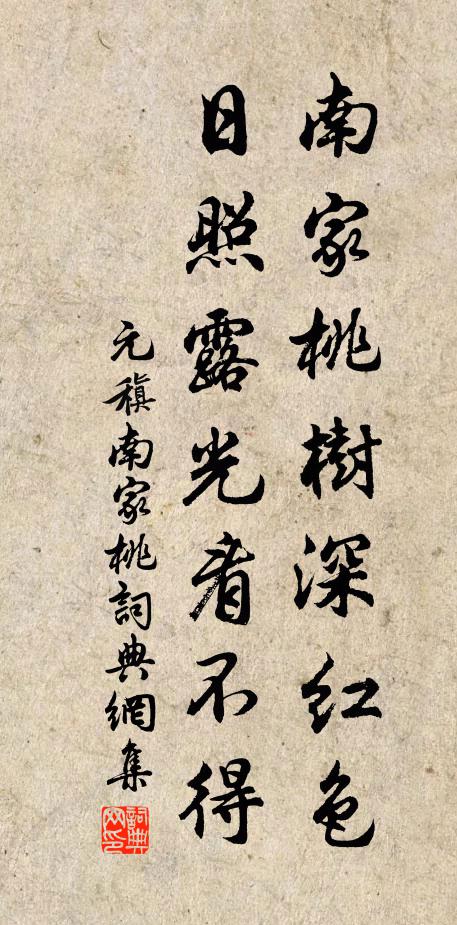 南家桃樹深紅色
日照露光看不得
元稹南家桃詞典網集
詞典网印